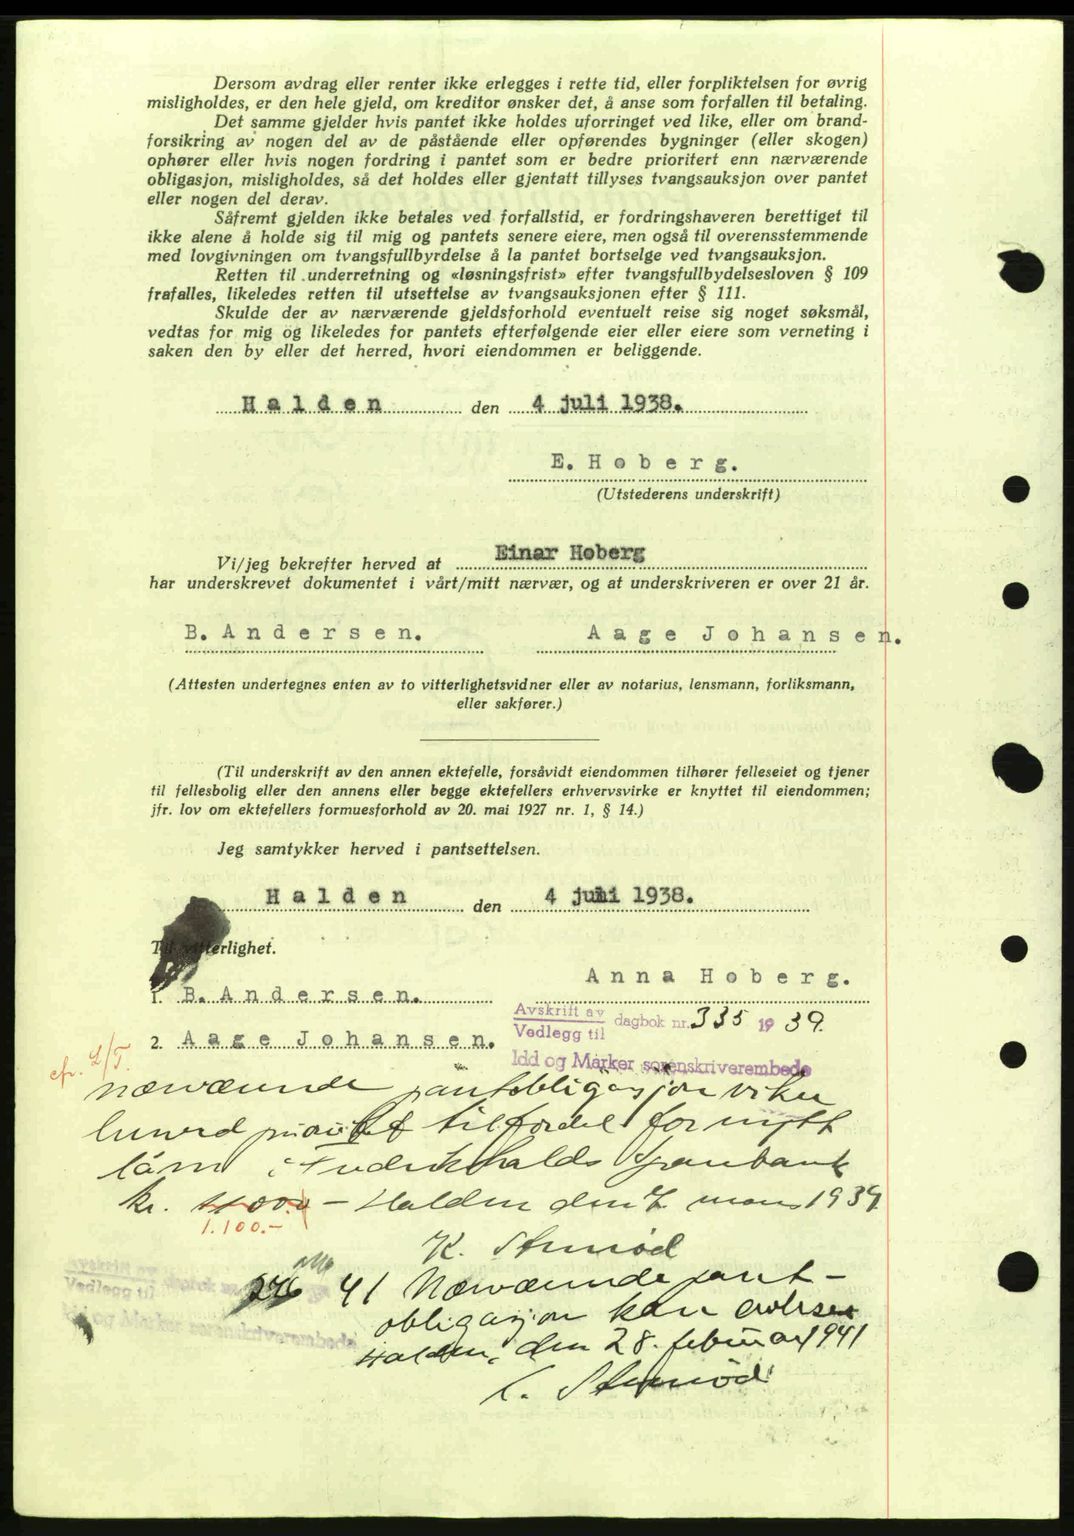 Dersom avdrag eller renter ikke erlegges i rette tid, eller forpliktelsen for øvrig
misligholdes, er den hele gjeld, om kreditor ønsker det, å anse som forfallen til betaling.
Det samme gjelder hvis pantet ikke holdes uforringet ved like, eller om brand-
forsikring av nogen del av de påstående eller opførendes bygninger (eller skogen)
ophører eller hvis nogen fordring i pantet som er bedre prioritert enn nærværende
obligasjon, misligholdes, så det holdes eller gjentatt tillyses tvangsauksjon over pantet
eller nogen del derav.
Såfremt gjelden ikke betales ved forfallstid, er fordringshaveren berettiget til
ikke alene å holde sig til mig og pantets senere eiere, men også til overensstemmende
med lovgivningen om tvangsfullbyrdelse å la pantet bortselge ved tvangsauksjon.
Retten til underretning og «løsningsfrist» efter tvangsfullbydelsesloven § 109
frafalles, likeledes retten til utsettelse av tvangsauksjonen efter § 111.
Skulde der av nærværende gjeldsforhold eventuelt reise sig noget søksmål,
vedtas for mig og likeledes for pantets efterfølgende eier eller eiere som verneting i
saken den by eller det herred, hvori eiendommen er beliggende.
Halden den 4 juli 1938.
E. Høberg.
(Utstederens underskrift)
Vi/jeg bekrefter herved at Einar Høberg
har underskrevet dokumentet i vårt/mitt nærvær, og at underskriveren er over 21 år.
B. Andersen. Aage Johansen.
(Attesten undertegnes enten av to vitterlighetsvidner eller av notarius, lensmann, forliksmann,
eller sakfører.)
(Til underskrift av den annen ektefelle, forsåvidt eiendommen tilhører felleseiet og tjener
til fellesbolig eller den annens eller begge ektefellers erhvervsvirke er knyttet til eiendommen;
jfr. lov om ektefellers formuesforhold av 20. mai 1927 nr. 1, § 14.)
Jeg samtykker herved i pantsettelsen.
Halden den 4 juli 1938.
Til vitterlighet.
Anna Høberg.
1. B. Andersen.
Avskrift av
Vedlegg til dagbok nr. 335 1939.
2. Aage Johansen.
Idd og Marker sorenskriverembede
nærværende pantobligasjon viker
herved prioritet til fordel for nytt
lån i Fredrikshalds Sparebank
kr. 4000.- Halden den 7. mars 1939
1.100.-
K. Stenrød
Avskrift av
Vedlegg til
Idd og Marker sorenskriverembede
276 41 Nærværende pant-
obligasjon kan avlyses
Halden, den 28. februar 1941
K. Stenrød